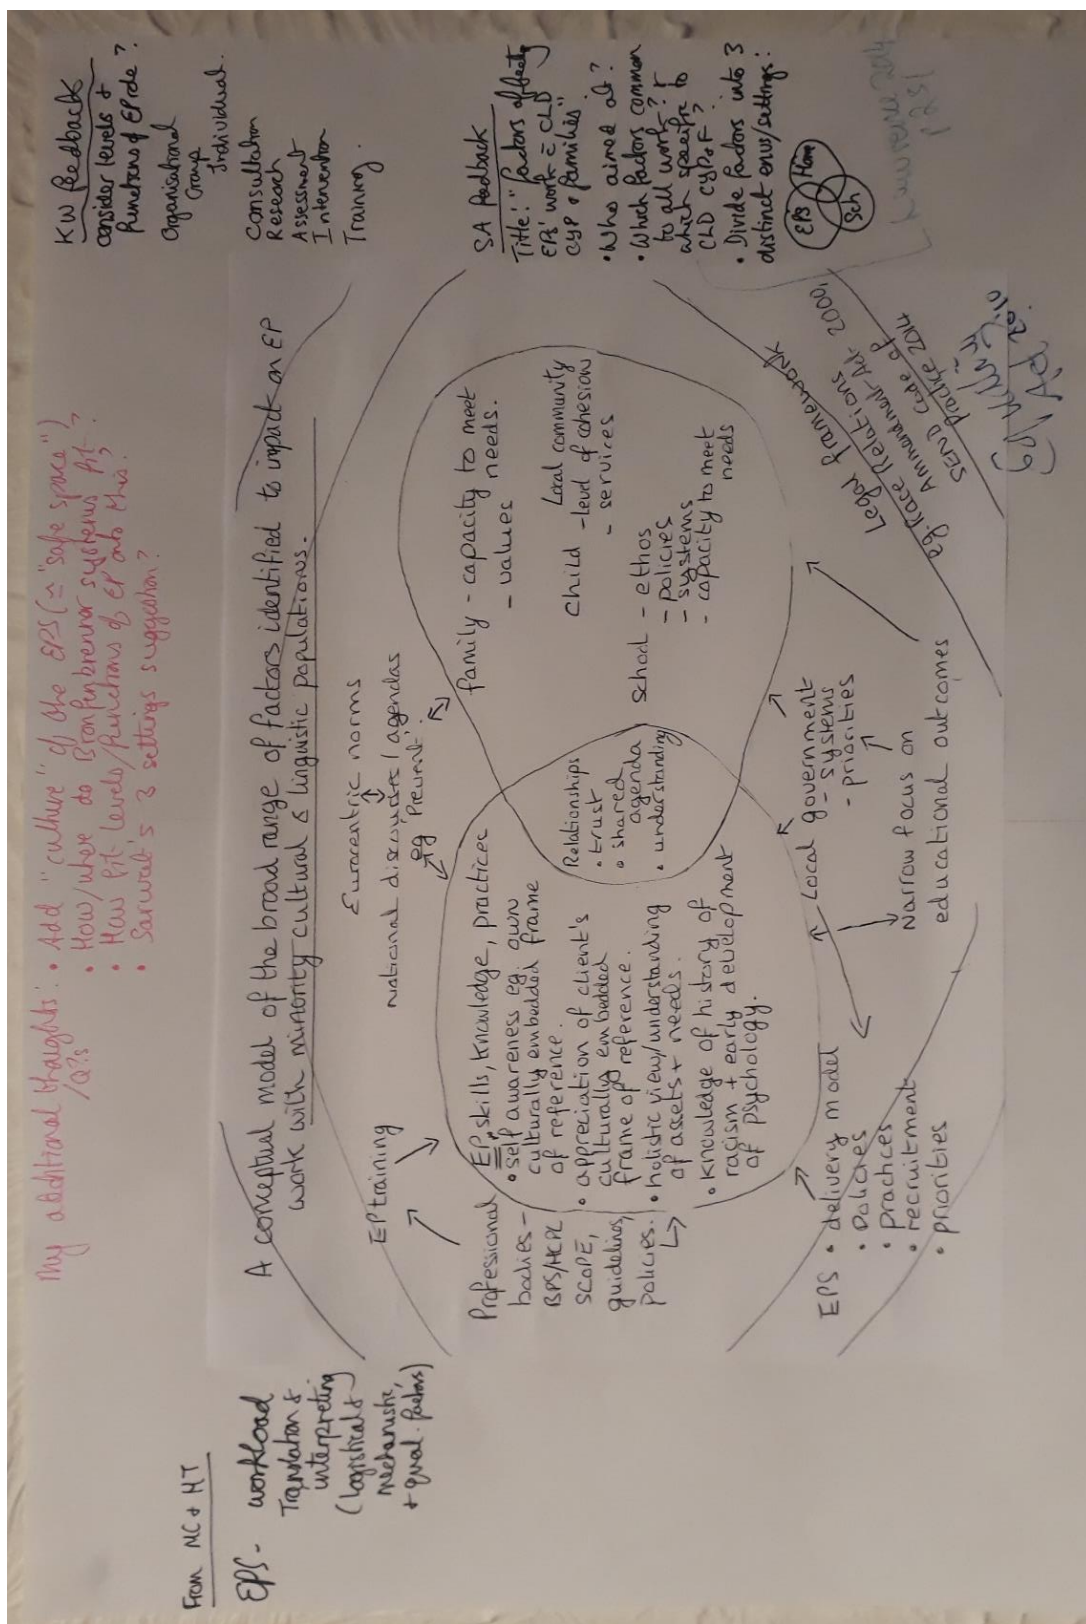 My additional thoughts: • Add "culture" of the EPS (≃ "safe space")
/Q?s • How/where do Bronfenbrenner systems fit?
• How fit levels/functions of EP onto this?
• Sarwat's 3 settings suggestion?
From MC & HT
EPS - workload
Translation &
interpreting
(logistical &
mechanistic,
+ qual. factors)
A conceptual model of the broad range of factors identified to impact on EP
work with minority cultural & linguistic populations.
EP training
Eurocentric norms
national discourses/agendas
eg 'Prevent'
Professional
bodies -
BPS/HCPC
SCOPE,
guidelines,
policies.
EP skills, knowledge, practices
• self awareness eg. own
culturally embedded frame
of reference.
• appreciation of client's
culturally embedded
frame of reference.
• holistic view/understanding
of assets + needs.
• knowledge of history of
racism + early development
of psychology.
Relationships
• trust
• shared
agenda
• understanding
family - capacity to meet
needs.
- values
Child
Local community
- level of cohesion
- services
School - ethos
- policies
- systems
- capacity to meet
needs
EPS • delivery model
• policies
• practices
• recruitment
• priorities
Local government
- systems
- priorities
Narrow focus on
educational outcomes
Legal framework
eg. Race Relations
Ammendment Act 2000,
SEND Code of
Practice 2014
Equality
Act 2010
KW feedback
consider levels &
functions of EP role?
Organisational
Group
Individual.
Consultation
Research
Assessment
Intervention
Training.
SA feedback
Title: "factors affecting
EPs' work c̄ CLD
CYP & families"
• Who aimed at?
• Which factors common
to all work? &
which specific to
CLD CYP&F?
• Divide factors into 3
distinct envs/settings:
EPS
Home
Sch
Lawrence 2014
p251